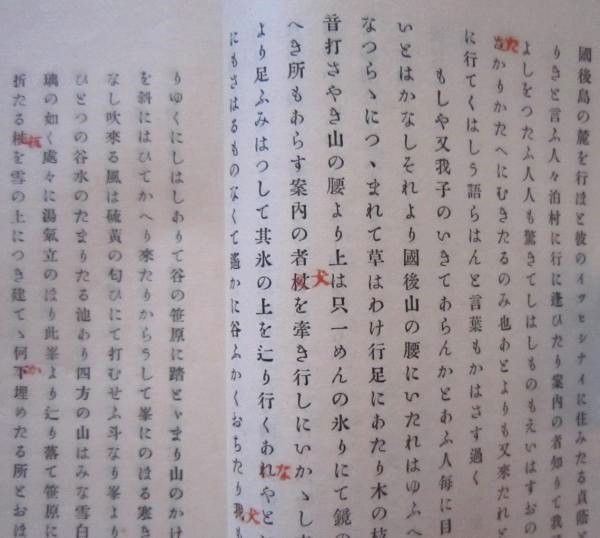 國後島の麓を行ほと彼のイツセシナイに住みたる貞
りきと言ふ人々泊村に行に逢ひたり案内の者知りて我
よしをつたふ人人も驚きてしはしものもえいはすおの
かりかたへにむきたるのみ也あとよりも又來たれと
に行てくはしう語らはんと言葉もかはさす過く
もしや又我子のいきてあらんかとあふ人每に目
いとはかなしそれより國後山の腰にいたれはゆふへ
なつらゝにつゝまれて草はわけ行足にあたり木の枝
音打さやき山の腰より上は只一めんの氷りにて鏡の
へき所もあらす案内の者杖を牽き行しにいかゝし
犬
より足ふみはつして其氷の上を辷り行くあれやと
な
にもさはるものなくて遙かに谷ふかくおちたり我も
犬
りゆくにしはしありて谷の笹原に踏とゝまり山のかけ
を斜にはひてかへり來たりからうして峯にのほる寒き
なし吹來る風は硫黄の匂ひにて打むせふ斗なり峯より
ひとつの谷水のたまりたる池あり四方の山はみな雪白
璃の如く處々に湯氣立のほり此峯より辷り落て笹原に
折たる杖を雪の上につき建てゝ何下埋めたる所とおほ
か